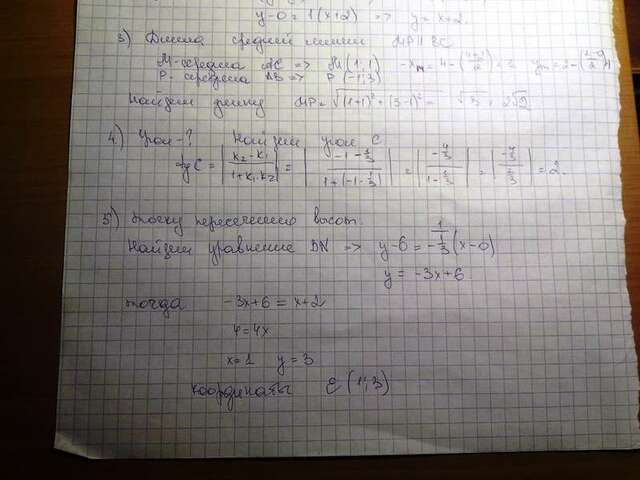 y-0 = 1(x+2) => y = x+2.
3) Длина средней линии MP || BC
M-середина AC => M(1; 1)
P-середина AB => P(-1; 3)
Найдём длину MP = √((1+1)² + (3-1)²) = √8 = 2√2
4) Угол-? Найдём угол C
tg C = |(k₂-k₁)/(1+k₁·k₂)| = |(-1-1/3)/(1+(-1·1/3))| = |(-4/3)/(1-1/3)| = |(-4/3)/(2/3)| = 2.
5) точку пересечения высот.
Найдём уравнение BN => y-6 = -1/(1/3)(x-0)
y = -3x+6
тогда -3x+6 = x+2
4 = 4x
x=1 y=3
координаты E(1; 3)